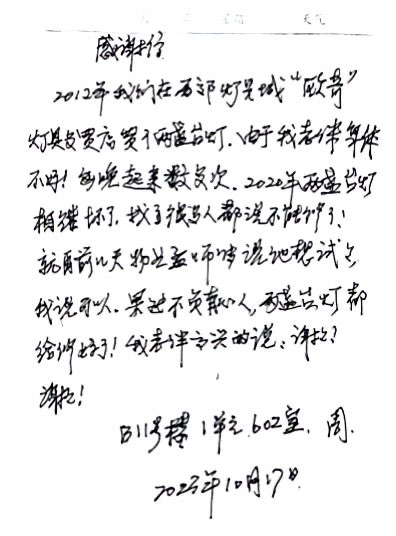 感谢信
2012年我们在西郊灯具城“欧奇”
灯具设置店买了两盏台灯.由于我老伴身体
不好!每晚起来数多次.2020年两盏台灯
相继坏了.找了很多人都说不能修了!
就目前几天物业孟师傅说他想试试
我说可以.果然不负有心人,两盏台灯都
给修好了!我老伴高兴的说:谢谢!
谢谢!
B11号楼1单元602室.周.
2023年10月17日